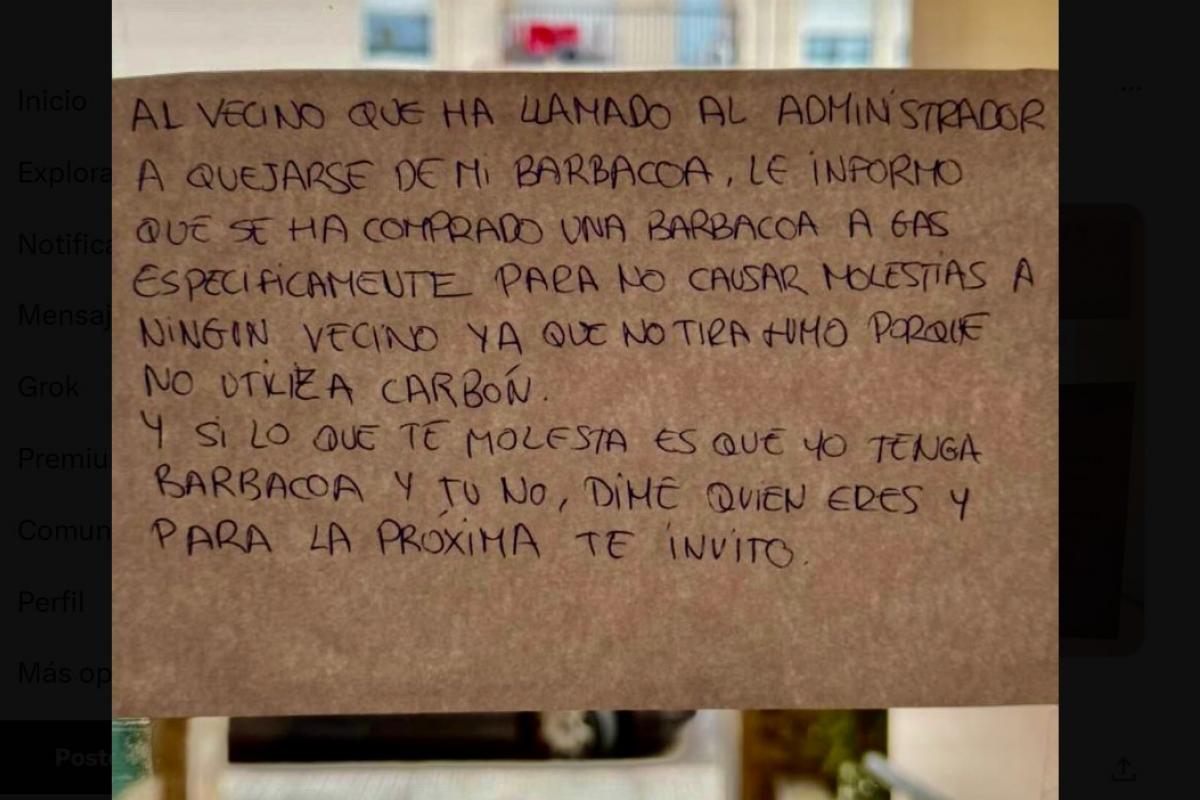 Inicio
Explora
Notifica
Mensaj
Grok
Premiu
Comun
Perfil
Más op
Poste
AL VECINO QUE HA LLAMADO AL ADMINISTRADOR
A QUEJARSE DE MI BARBACOA, LE INFORMO
QUE SE HA COMPRADO UNA BARBACOA A GAS
ESPECIFICAMENTE PARA NO CAUSAR MOLESTIAS A
NINGUN VECINO YA QUE NO TIRA HUMO PORQUE
NO UTILIZA CARBÓN.
Y SI LO QUE TE MOLESTA ES QUE YO TENGA
BARBACOA Y TU NO, DIME QUIEN ERES Y
PARA LA PRÓXIMA TE INVITO.